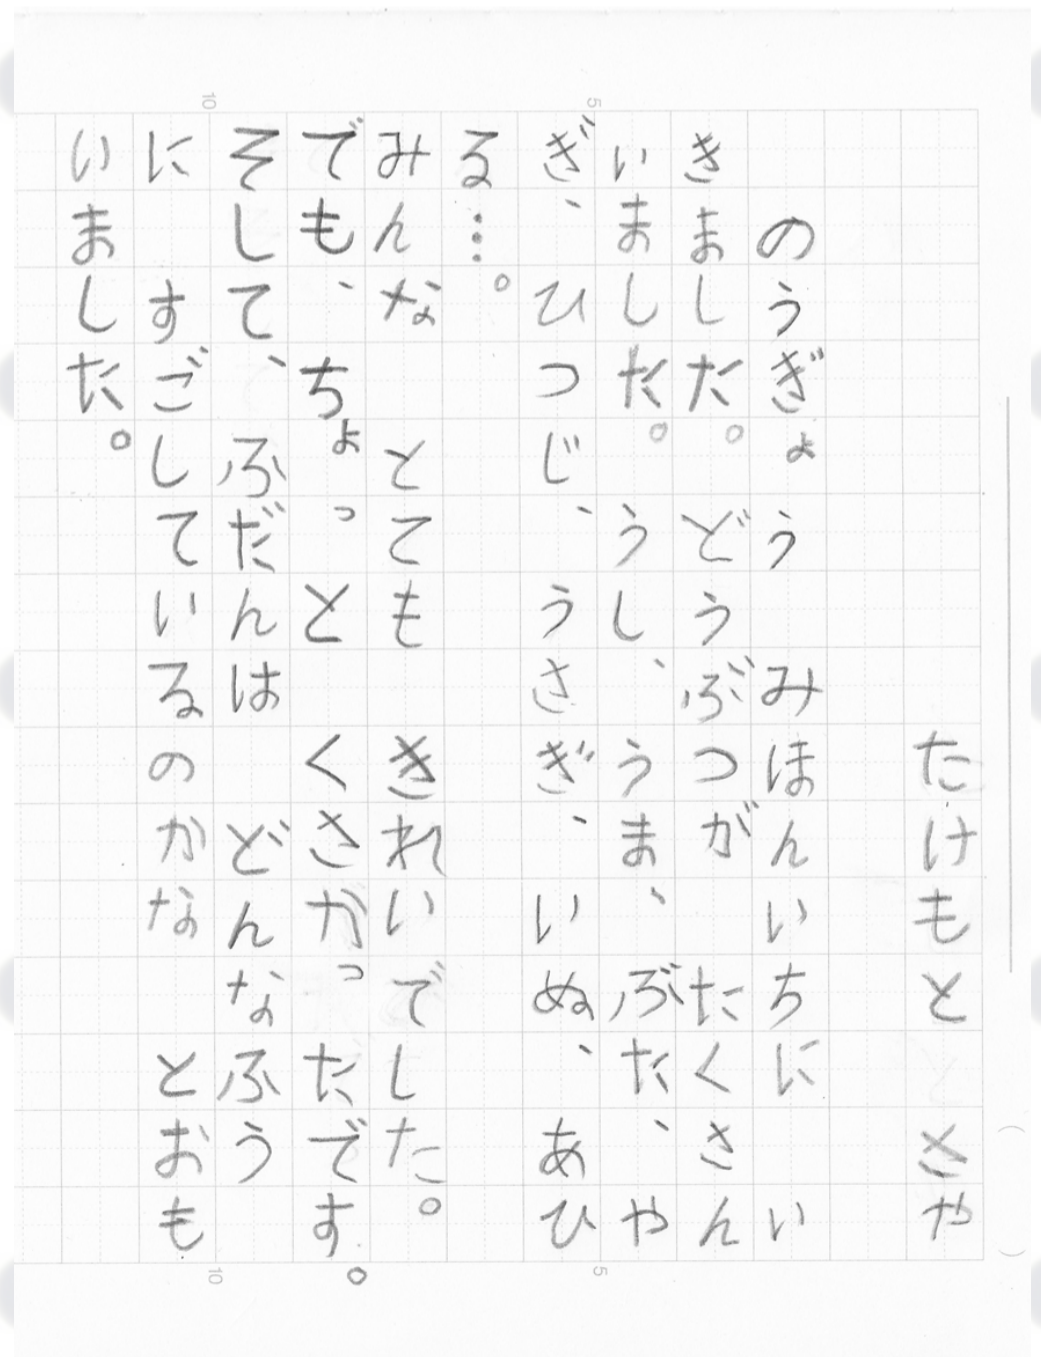 たけもと　さや
　のうぎょう　みほんいちに　い
きました。どうぶつが　たくさん
いました。うし、うま、ぶた、や
ぎ、ひつじ、うさぎ、いぬ、あひ
る…。
みんな　とても　きれいでした。
でも、ちょっと　くさかったです。
そして、ふだんは　どんなふう
に　すごしているのかな　とおも
いました。
5
10
5
10